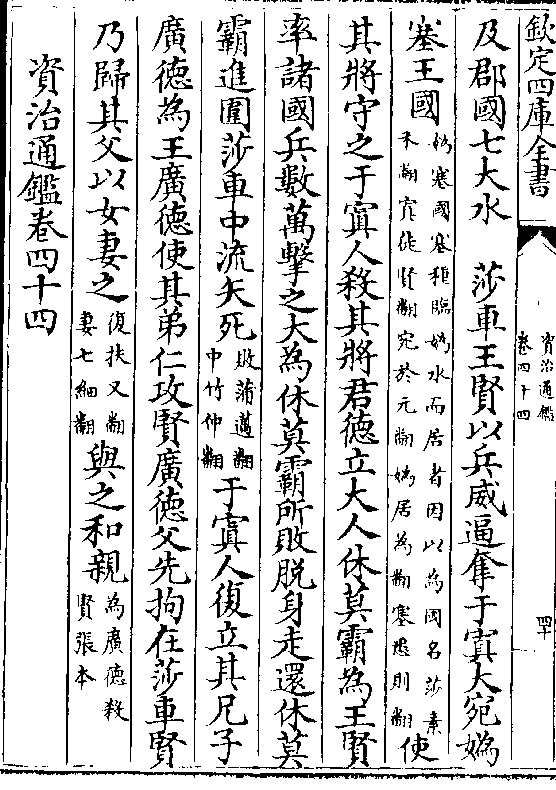 欽定四庫全書
資治通鑑
卷四十四
四十
及郡國七大水　莎車王賢以兵威逼奪于窴大宛媯
塞王國媯塞國塞種臨媯水而居者因以為國名莎素
禾翻窴徒賢翻宛於元翻媯居為翻塞悉則翻使
其將守之于窴人殺其將君德立大人休莫霸為王賢
率諸國兵數萬擊之大為休莫霸所敗脱身走還休莫
霸進圍莎車中流矢死敗蒲邁翻
中竹仲翻于窴人復立其兄子
廣德為王廣德使其弟仁攻賢廣德父先拘在莎車賢
乃歸其父以女妻之復扶又翻
妻七細翻與之和親為廣德殺
賢張本
資治通鑑卷四十四